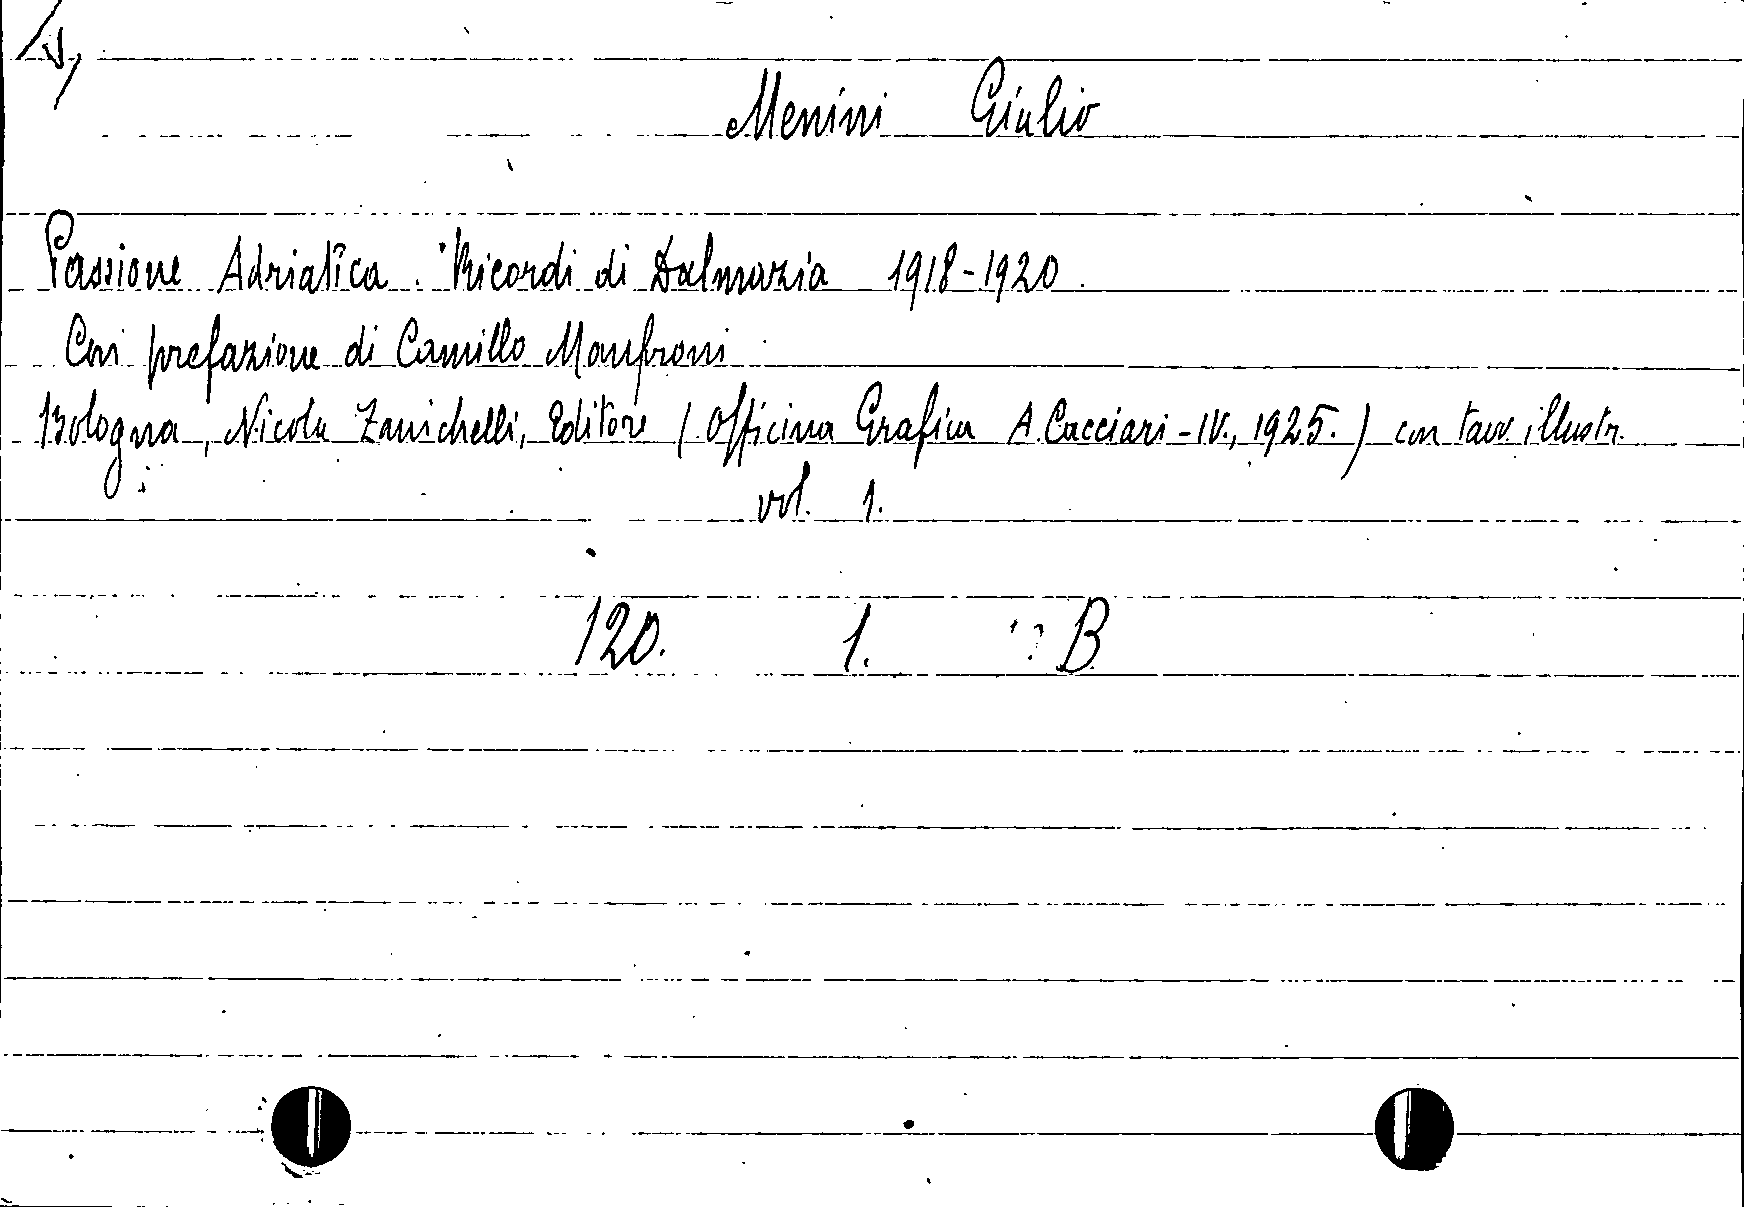 Menini Giulio
Passione Adriatica. Ricordi di Dalmazia 1918-1920.
Con prefazione di Camillo Manfroni
Bologna, Nicola Zanichelli, Editore (Officina Grafica A. Cacciari - IV., 1925.) con tavv. illustr.
vol. 1.
120. 1. B